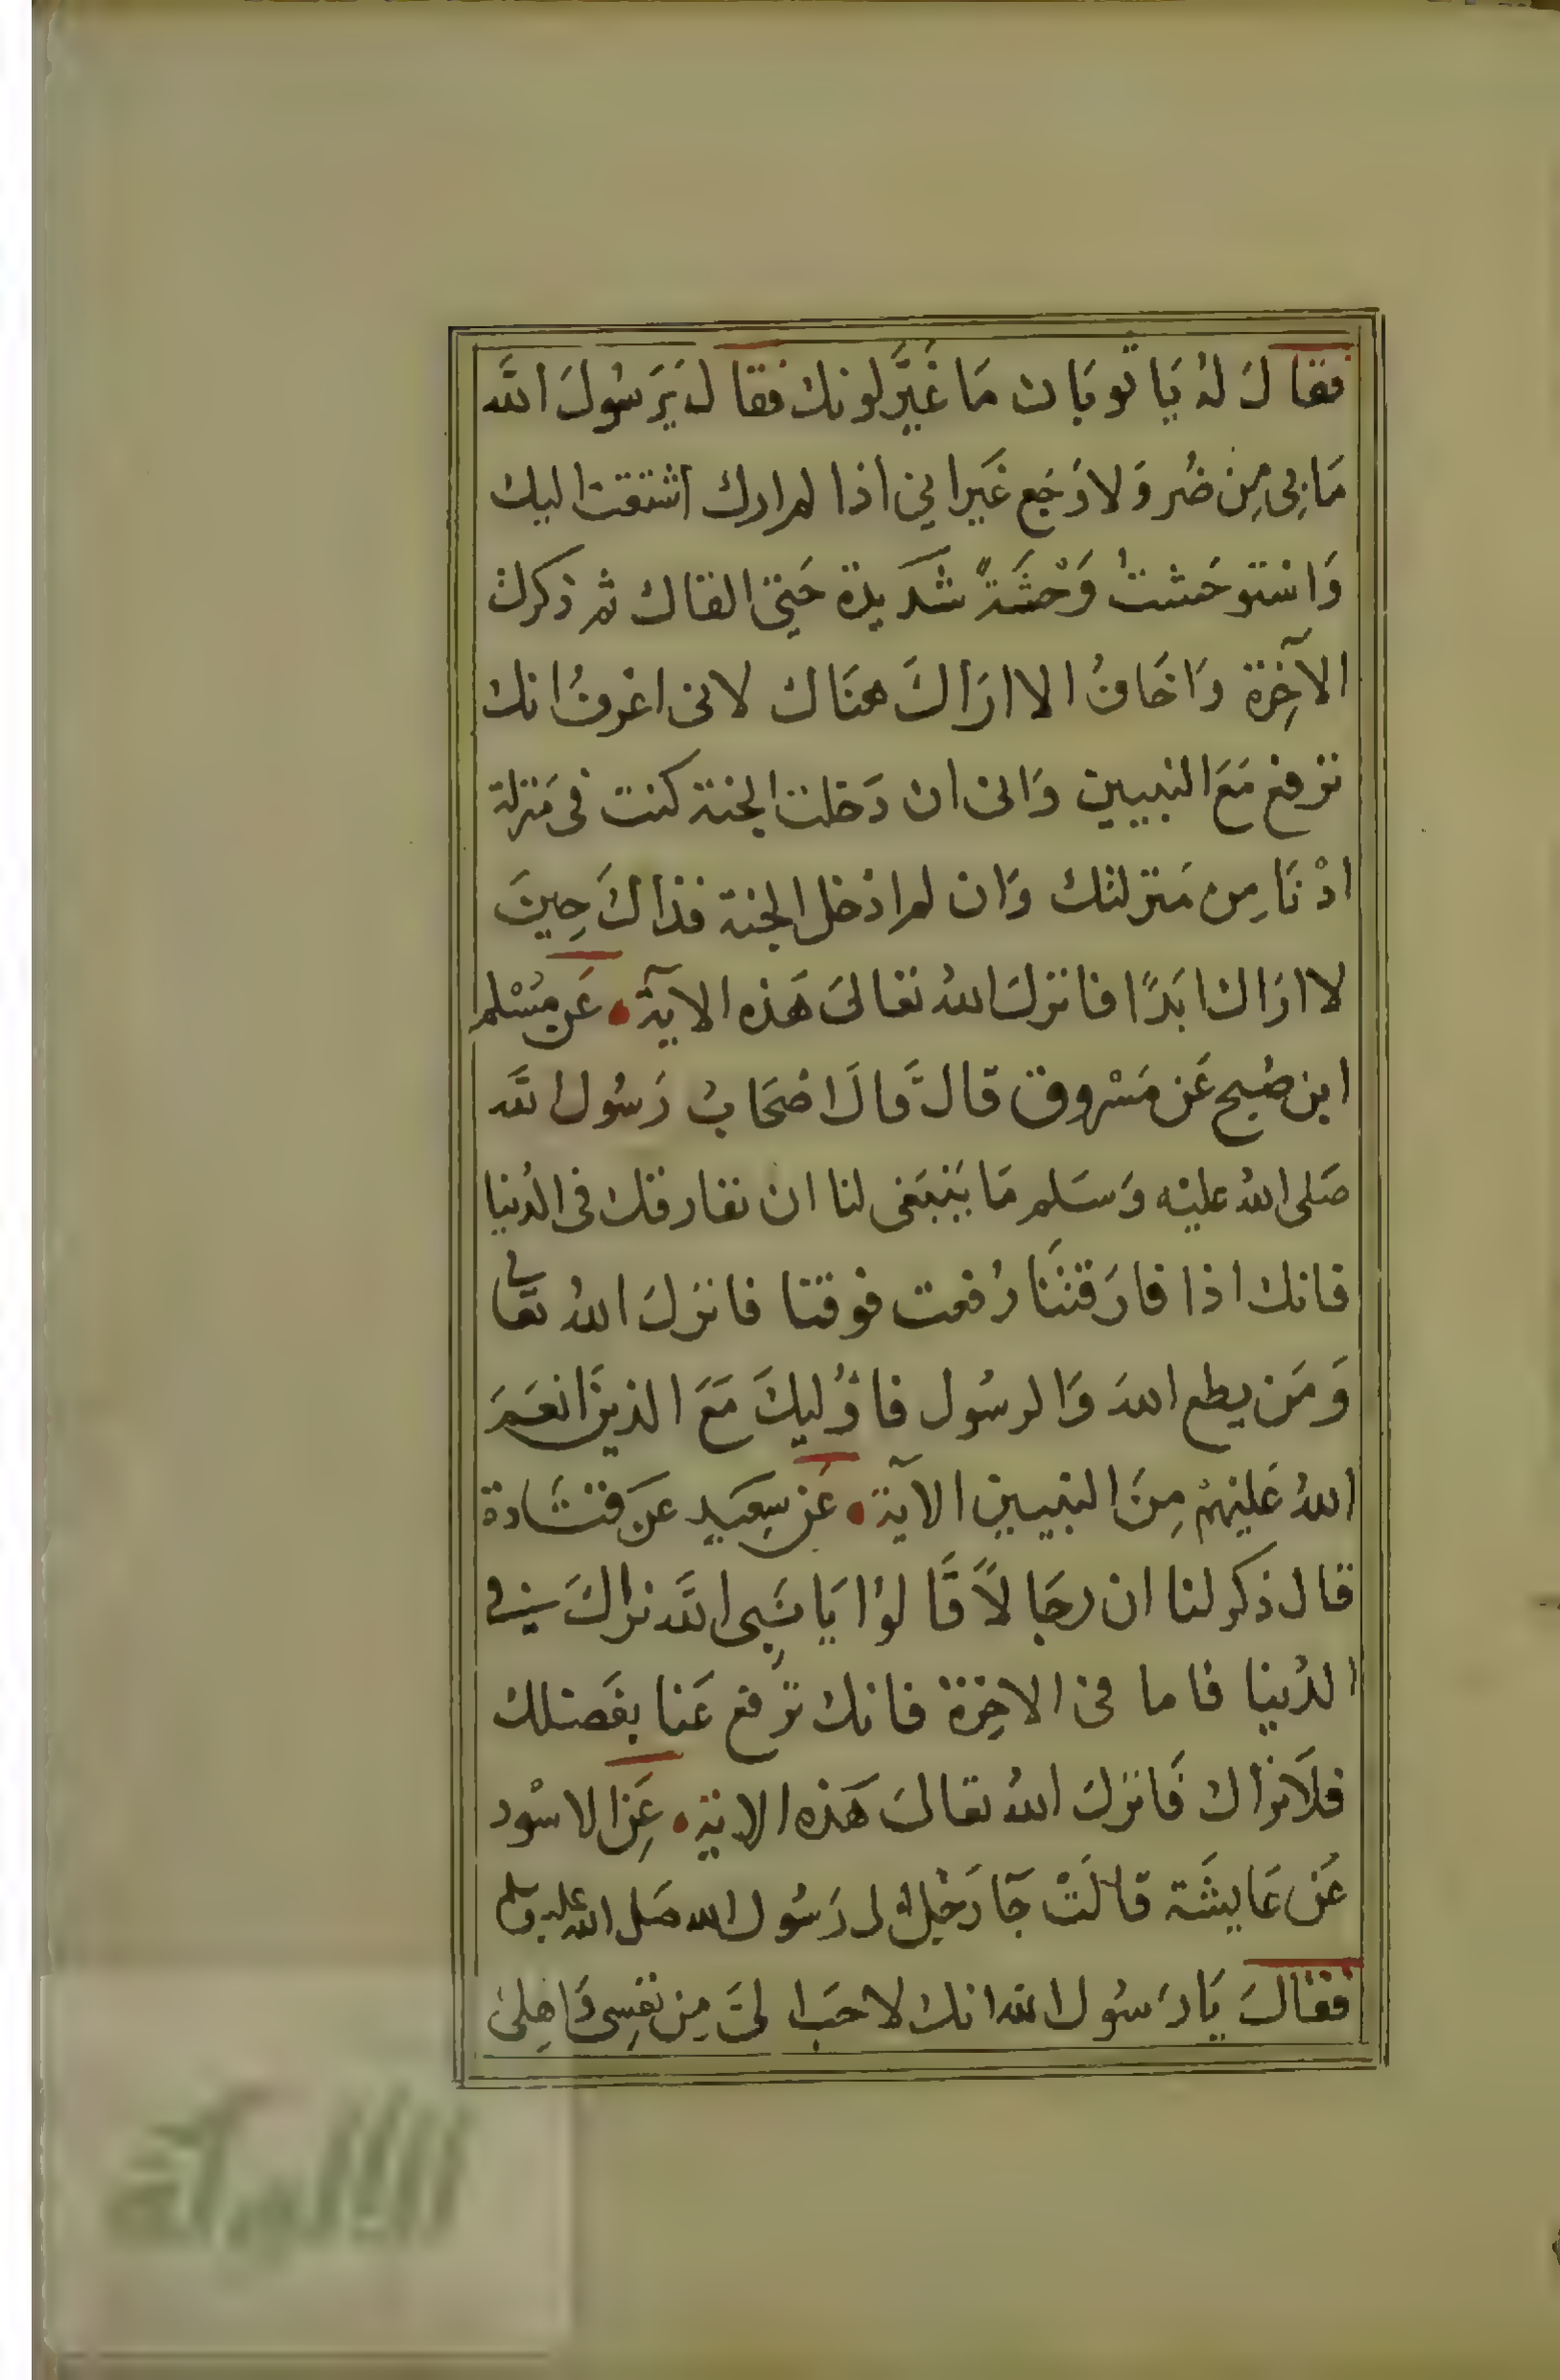 فقالَ لهُ يَا ثوبَان مَا غَيَّر لونك فقال يَرَسُولَ اللَّه
مَا بِي مِن ضُر وَلا وَجَع غَير اني اذا لم ارك اشتقت اليك
وَاستوحَشتُ وَحْشَةً شَدِيدة حَتى القاك ثم ذكرت
الآخِرَة وَاخَافُ الا ارَاكَ هنَاك لانى اعْرفُ انك
ترفع مَعَ النبيين وَانى ان دَخلت الجنة كنت فى مَنزلة
ادْنَا مِن مَنزلتك وَان لم ادخل الجنة فذاكَ حِينَ
لا ارَاك ابَدًا فانزلَ اللهُ تعَالىَ هَذه الآية عَن مُسْلم
ابن صُبيح عَن مَسْروق قال قَالَ اصْحَابُ رَسُول اللَّه
صَلى اللهُ عليْه وَسَلم مَا يَنبَغى لنا ان نفارقك فى الدُنيا
فانك اذا فارَقتنَا رُفعت فوقنا فانزلَ اللهُ تعالى
وَمَن يطع اللهَ وَالرسُول فاوُليكَ مَعَ الذينَ انعَمَ
اللهُ عَليْهمْ مِنَ النبيين الآية عَن سِعَيد عَن قتَادة
قال ذكر لنا ان رجَالاً قَالوُا يَا نَبِى اللَّه نرَاكَ في
الدُنيا فاما فى الاخِرَة فانك ترفع عَنا بفَضلك
فلاَ نرَاك فَانزلَ اللهُ تعَالىَ هَذه الاية عَنِ الاسْود
عَن عَايشَة قالَتْ جَآ رَجُل الى رَسُول الله صَلى الله عليه وسلم
فقالَ يَا رَسُول اللَّه انك لاحَب اليَّ مِن نفسِى وَاهلى
الألوكة